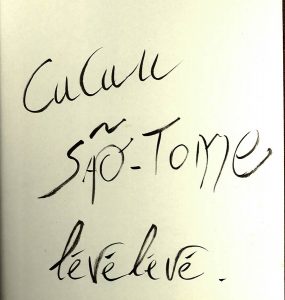 Cacau
SÃO-TOMe
lévélévé.